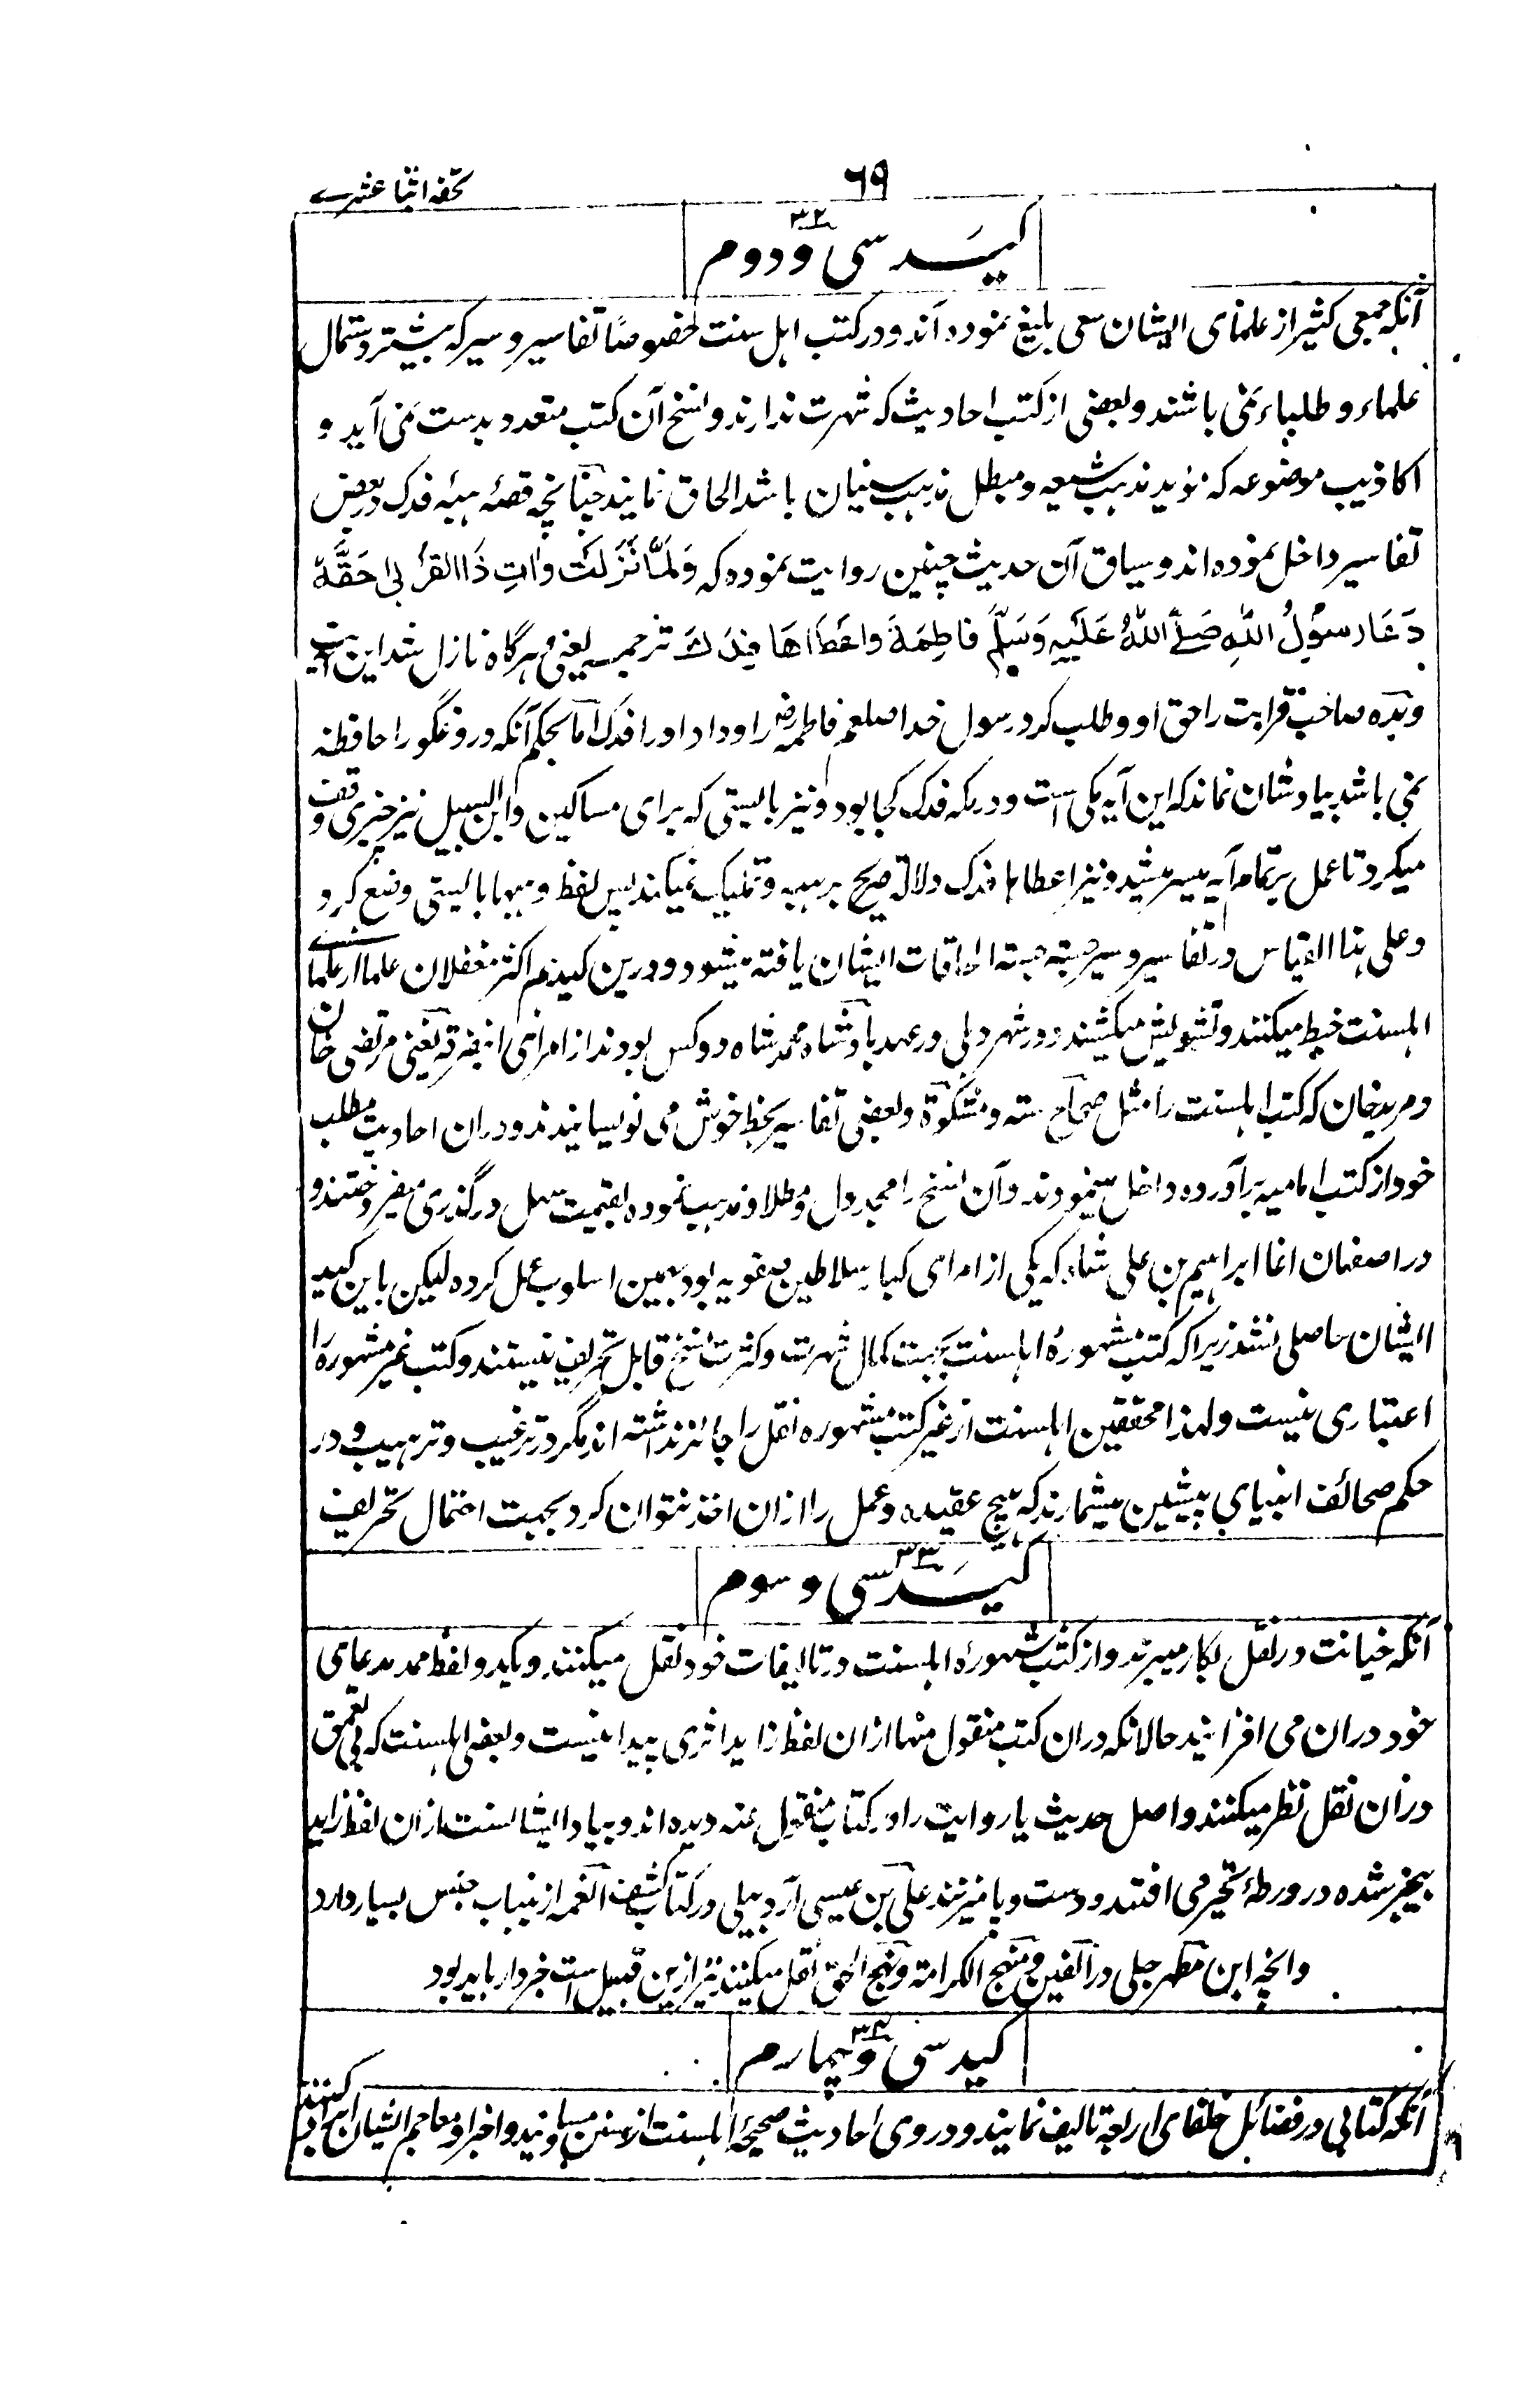 ٦٩
تحفه اثنا عشرے
٣٢
کید سی و دوم
آنکه جمعی کثیر از علمای ایشان سعی بلیغ نموده اند و در کتب اہل سنت خصوصًا تفاسیر و سیر که بیشتر دستمال
علماء و طلباء نمی باشند و بعضی از کتب احادیث که شهرت ندارند و نسخ آن کتب متعدد بدست نمی آید و
اکاذیب موضوعه که مؤید مذہب شیعه و مبطل مذہب سنیان باشد الحاق نمایند چنانچه قصۂ ہبۂ فدک در بعض
تفاسیر داخل نموده اند و سیاق آن حدیث چنین روایت نموده که وَلَمَّا نَزَلَتْ وَاٰتِ ذَا الْقُرْبٰی حَقَّهٗ
دَعَا رَسُوْلُ اللّٰهِ صَلَّے اللّٰهُ عَلَیْهِ وَسَلَّمَ فَاطِمَةَ وَاَعْطَاهَا فَدَكَ ترجمہ یعنی ہرگاه نازل شد این آیت
و بده صاحب قرابت را حق او و طلب کرد رسول خدا صلعم فاطمه رض را و داد او را فدک اما بحکم آنکه دروغگو را حافظه
نمی باشد بیاد شان نماند که این آیه مکی است و در مکه فدک کجا بود و نیز بایستی که برای مساکین و ابن السبیل نیز چیزی وقف
میکرد تا عمل بر تمام آیه میسر میشد و نیز اعطاها فدک دلالة صریح بر ہبه و تملیک نمیکند پس لفظ وہبہا بایستی وضع کرد
و علی ہذا القیاس در تفاسیر و سیر جسته جسته الحاقات ایشان یافته میشود و درین کید ہم اکثر مغفلان علما از علمای
اہلسنت خبط میکنند و تشویش میکشند و در شہر دہلی در عہد بادشاه محمد شاه دو کس بودند از امرای اینفرقه یعنی مرتضی خان
و مرید خان که کتب اہلسنت را مثل صحاح سته و مشکوٰة و بعضی تفاسیر بخط خوش می نویسانیدند و دران احادیث مطلب
خود از کتب امامیه برآورده داخل مینمودند و آن نسخ را مجدول و مطلا و مذہب نموده بقیمت سہل در گذری میفروختند و
در اصفہان اغا ابراہیم بن علی شاه که یکی از امرای کبار سلاطین صفویه بود بہمین اسلوب عمل کرده لیکن باین کید
ایشان حاصلی نشد زیراکه کتب مشہورۂ اہلسنت بجہت کمال شہرت و کثرت نسخ قابل تحریف نیستند و کتب غیر مشہوره را
اعتباری نیست و لہذا محققین اہلسنت از غیر کتب مشہوره نقل را جائز نداشته اند مگر در ترغیب و ترہیب و در
حکم صحائف انبیای پیشین میشمارند که ہیچ عقیده و عمل را ازان اخذ نتوان کرد بجہت احتمال تحریف
٣٣
کید سی و سوم
آنکه خیانت در نقل بکار میبرند و از کتب مشہورۂ اہلسنت در تالیفات خود نقل میکنند و یکدو لفظ ممد مدعای
خود دران می افزایند حالانکه دران کتب منقول منہا ازان لفظ زاید اثری پیدا نیست و بعضی اہلسنت که بی تعمق
در آن نقل نظر میکنند و اصل حدیث یا روایت را در کتاب منقول عنه دیده اند و بیاد ایشانست ازان لفظ زاید
بیخبر شده در ورطۂ تحیر می افتند و دست و پا میزنند علی بن عیسی اردبیلی در کتاب کشف الغمه ازینباب جنس بسیار دارد
و انچه ابن مطہر حلی در الفین و منہج الکرامة و نہج الحق نقل میکند نیز ازین قبیل است خبردار باید بود
٣٤
کید سی و چہارم
آنکه کتابی در فضائل خلفای اربعه تالیف نمایند و در وی احادیث صحیحۂ اہلسنت از سنن مسانید و اجزا و معاجم ایشان